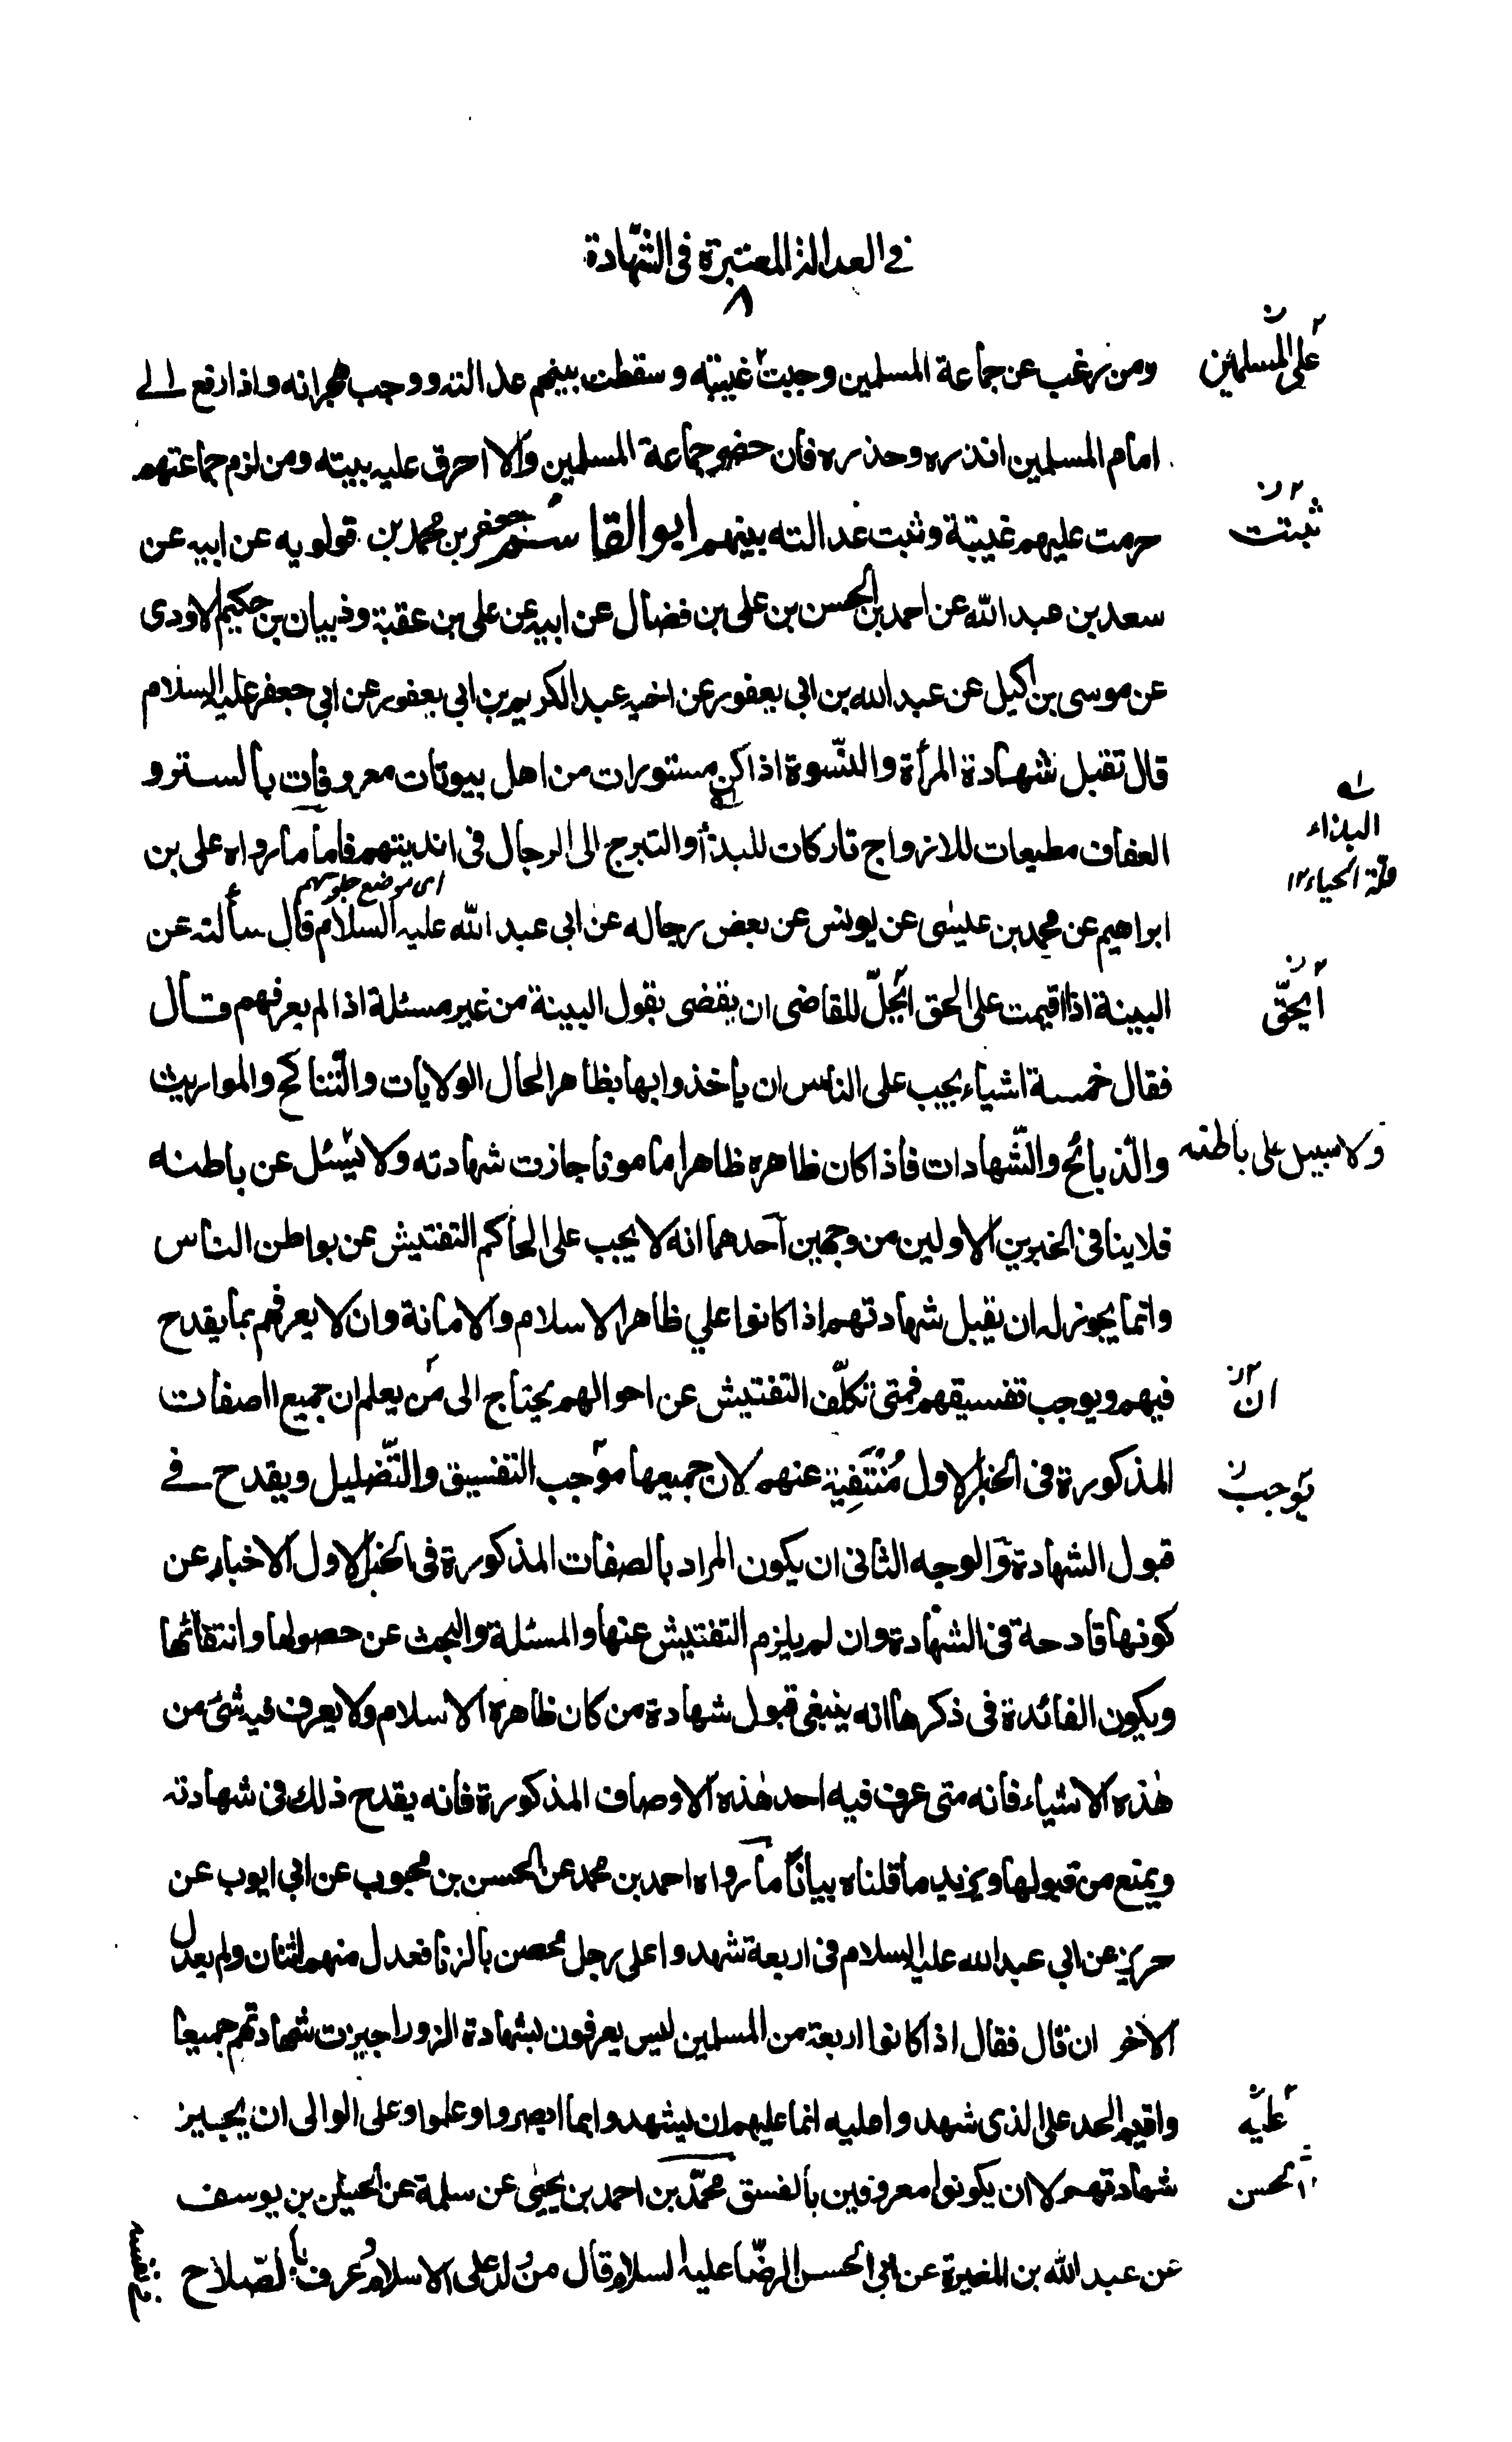 في العدالة المعتبرة في الشّهادة
٨
على المسلمين
ومن رغب عن جماعة المسلمين وجبت غيبته وسقطت بينهم عدالته ووجب هجرانه واذا رفع الى
امام المسلمين انذره وحذره فان حضر جماعة المسلمين والا احرق عليه بيته ومن لزم جماعتهم
ثبتت
حرمت عليهم غيبتة وثبت عدالته بينهم ابو القاسم جعفر بن محمد بن قولويه عن ابيه عن
سعد بن عبد الله عن احمد بن الحسن بن على بن فضال عن ابيه عن على بن عقبة وذبيان بن حكيم الاودى
عن موسى بن اكيل عن عبد الله بن ابى يعفور عن اخيه عبد الكريم بن ابي يعفور عن ابي جعفر عليه السلام
قال تقبل شهادة المرأة والنّسوة اذا كن مستورات من اهل بيوتات معروفات بالستر و
البذاء
قلة الحياء ١٢
العفاف مطيعات للازواج تاركات للبذأ والتبرج الى الرجال فى انديتهم فاما ما رواه على بن
اى موضع جلوسهم
ابراهيم عن محمد بن عيسى عن يونس عن بعض رجاله عن ابى عبد الله عليه السلام قال سألته عن
أيحقّ
البينة اذا اقيمت على الحق ايحلّ للقاضى ان يقضى بقول البينة من غير مسئلة اذا لم يعرفهم قال
فقال خمسة اشياء يجب على الناس ان ياخذوا بها بظاهر الحال الولايات والتّناكح والمواريث
ولا سبيل على باطنه
والذبائح والشّهادات فاذا كان ظاهره ظاهرا مامونا جازت شهادته ولا يسئل عن باطنه
فلا ينافى الخبرين الاولين من وجهين احدهما انه لا يجب على الحاكم التفتيش عن بواطن الناس
وانما يجوز له ان يقبل شهادتهم اذا كانوا علي ظاهر الاسلام والامانة وان لا يعرفهم بما يقدح
ان
فيهم ويوجب تفسيقهم فمتى تكلّف التفتيش عن احوالهم يحتاج الى من يعلم ان جميع الصفات
يوجب
المذكورة فى الخبر الاول مُنْتَفِية عنهم لان جميعها موجب التفسيق والتّضليل ويقدح فے
قبول الشهادة والوجه الثانى ان يكون المراد بالصفات المذكورة فى الخبر الاول الاخبار عن
كونها قادحة فى الشهادة وان لم يلزم التفتيش عنها والمسئلة والبحث عن حصولها وانتفائها
ويكون الفائدة فى ذكرها انه ينبغى قبول شهادة من كان ظاهره الاسلام ولا يعرف فيه شئ من
هٰذه الاشياء فانه متى عرف فيه احد هٰذه الاوصاف المذكورة فانه يقدح ذلك فى شهادته
ويمنع من قبولها ويزيد ما قلناه بيانًا ما رواه احمد بن محمد عن الحسن بن محبوب عن ابى ايوب عن
حريز عن ابي عبد الله عليه السلام فى اربعة شهدوا على رجل محصن بالزنا فعدل منهم اثنان ولم يعدل
الاخر ان قال فقال اذا كانوا اربعة من المسلمين ليس يعرفون بشهادة الزور اجيزت شهادتهم جميعا
عليّه
واقيم الحد على الذى شهدوا عليه انما عليهم ان يشهدوا بما ابصروا وعلموا وعلى الوالى ان يجيز
الحسن
شهادتهم الا ان يكونوا معروفين بالفسق محمّد بن احمد بن يحيى عن سلمة عن الحسين بن يوسف
عن عبد الله بن المغيرة عن ابي الحسن الرضّا عليه السلام قال من ولد على الاسلام وعرف بالصّلاح
فى نفسه